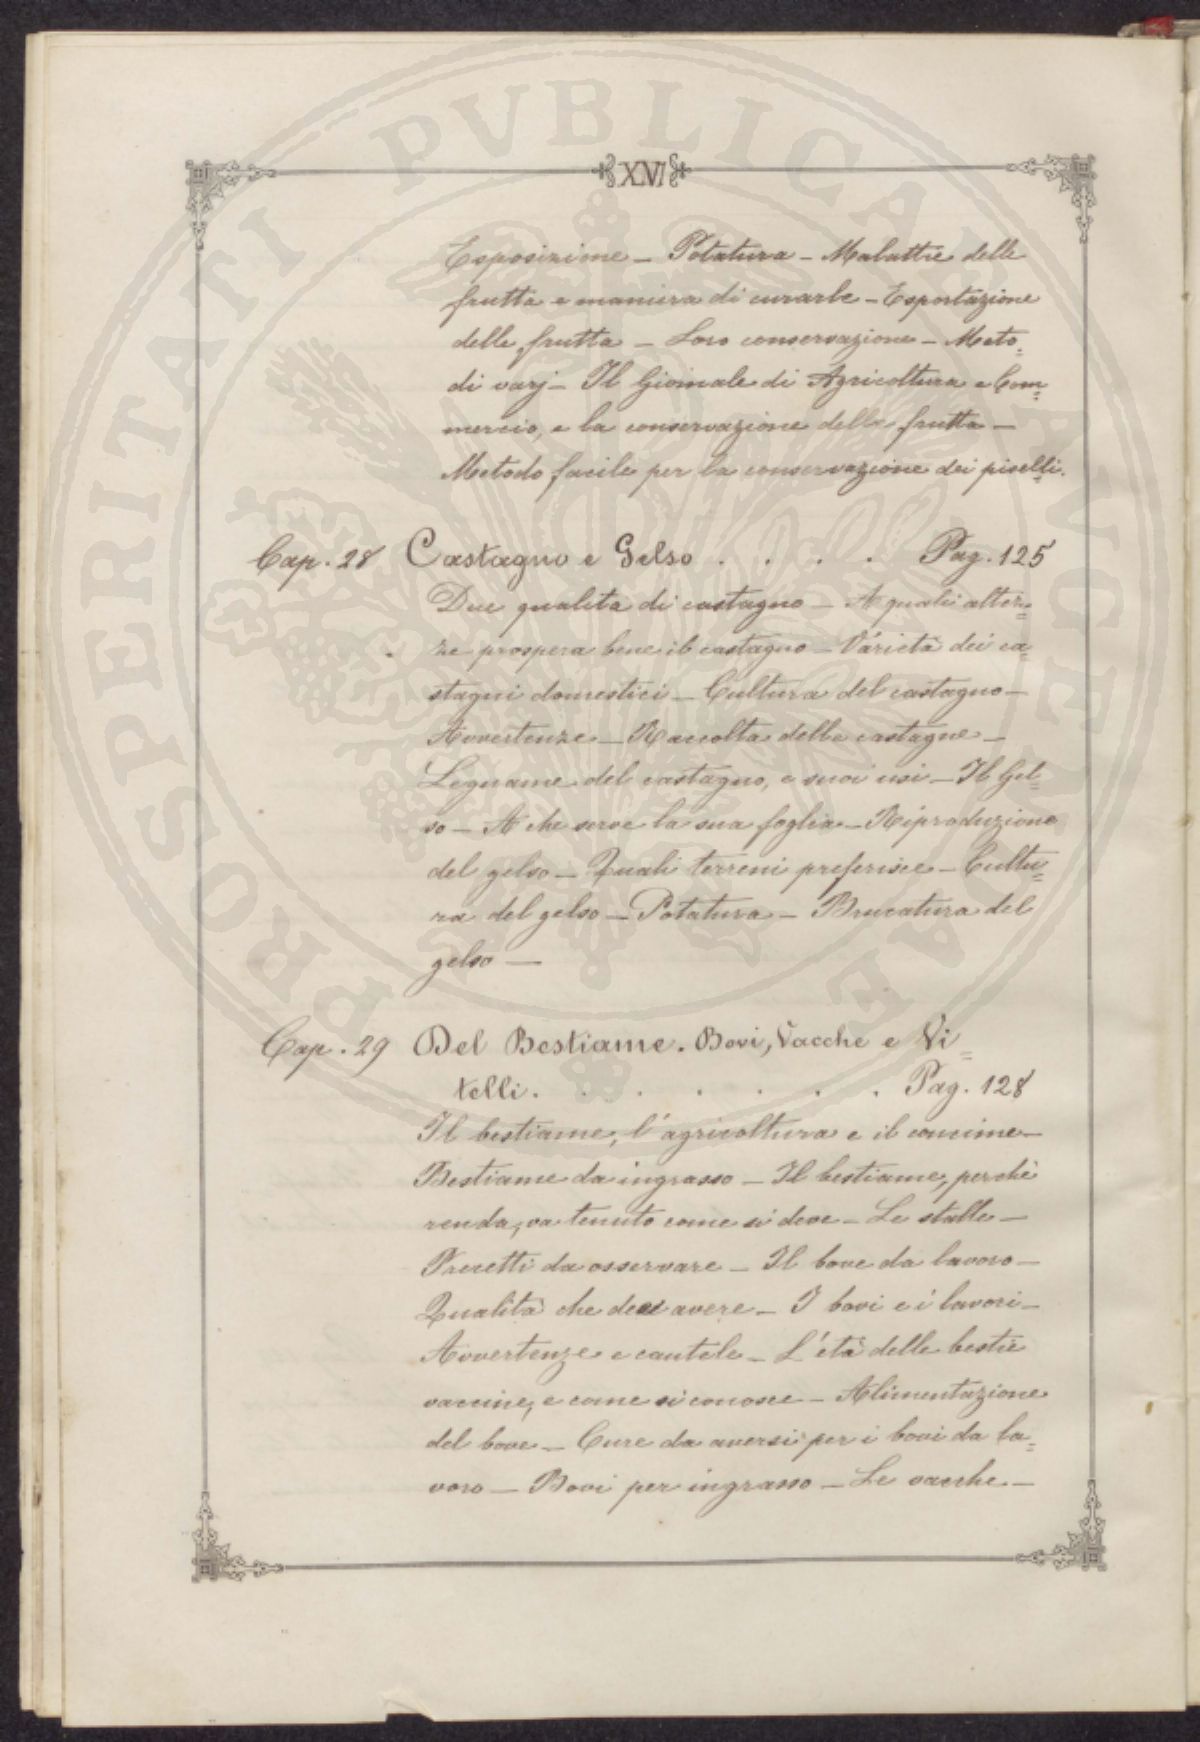 XVI
Esposizione — Potatura — Malattie delle
frutta e maniera di curarle — Esportazione
delle frutta — Loro conservazione — Meto=
di varj — Il Giornale di Agricoltura e Com=
mercio, e la conservazione delle frutta —
Metodo facile per la conservazione dei piselli.
Cap. 28 Castagno e Gelso . . . . Pag. 125
Due qualità di castagno — A quali altez=
ze prospera bene il castagno — Varietà dei ca=
stagni domestici — Cultura del castagno —
Avvertenze — Raccolta delle castagne —
Legname del castagno, e suoi usi — Il Gel=
so — A che serve la sua foglia — Riproduzione
del gelso — Quali terreni preferisce — Cultu=
ra del gelso — Potatura — Brucatura del
gelso —
Cap. 29 Del Bestiame. Bovi, Vacche e Vi=
telli. . . . . . . Pag. 128
Il bestiame, l'agricoltura e il concime —
Bestiame da ingrasso — Il bestiame, perchè
renda, va tenuto come si deve — Le stalle —
Precetti da osservare — Il bove da lavoro —
Qualità che deve avere — I bovi e i lavori —
Avvertenze e cautele — L'età delle bestie
vaccine, e come si conosce — Alimentazione
del bove — Cure da aversi per i bovi da la=
voro — Bovi per ingrasso — Le vacche —
PROSPERITATI PVBLICAE AVGENDAE